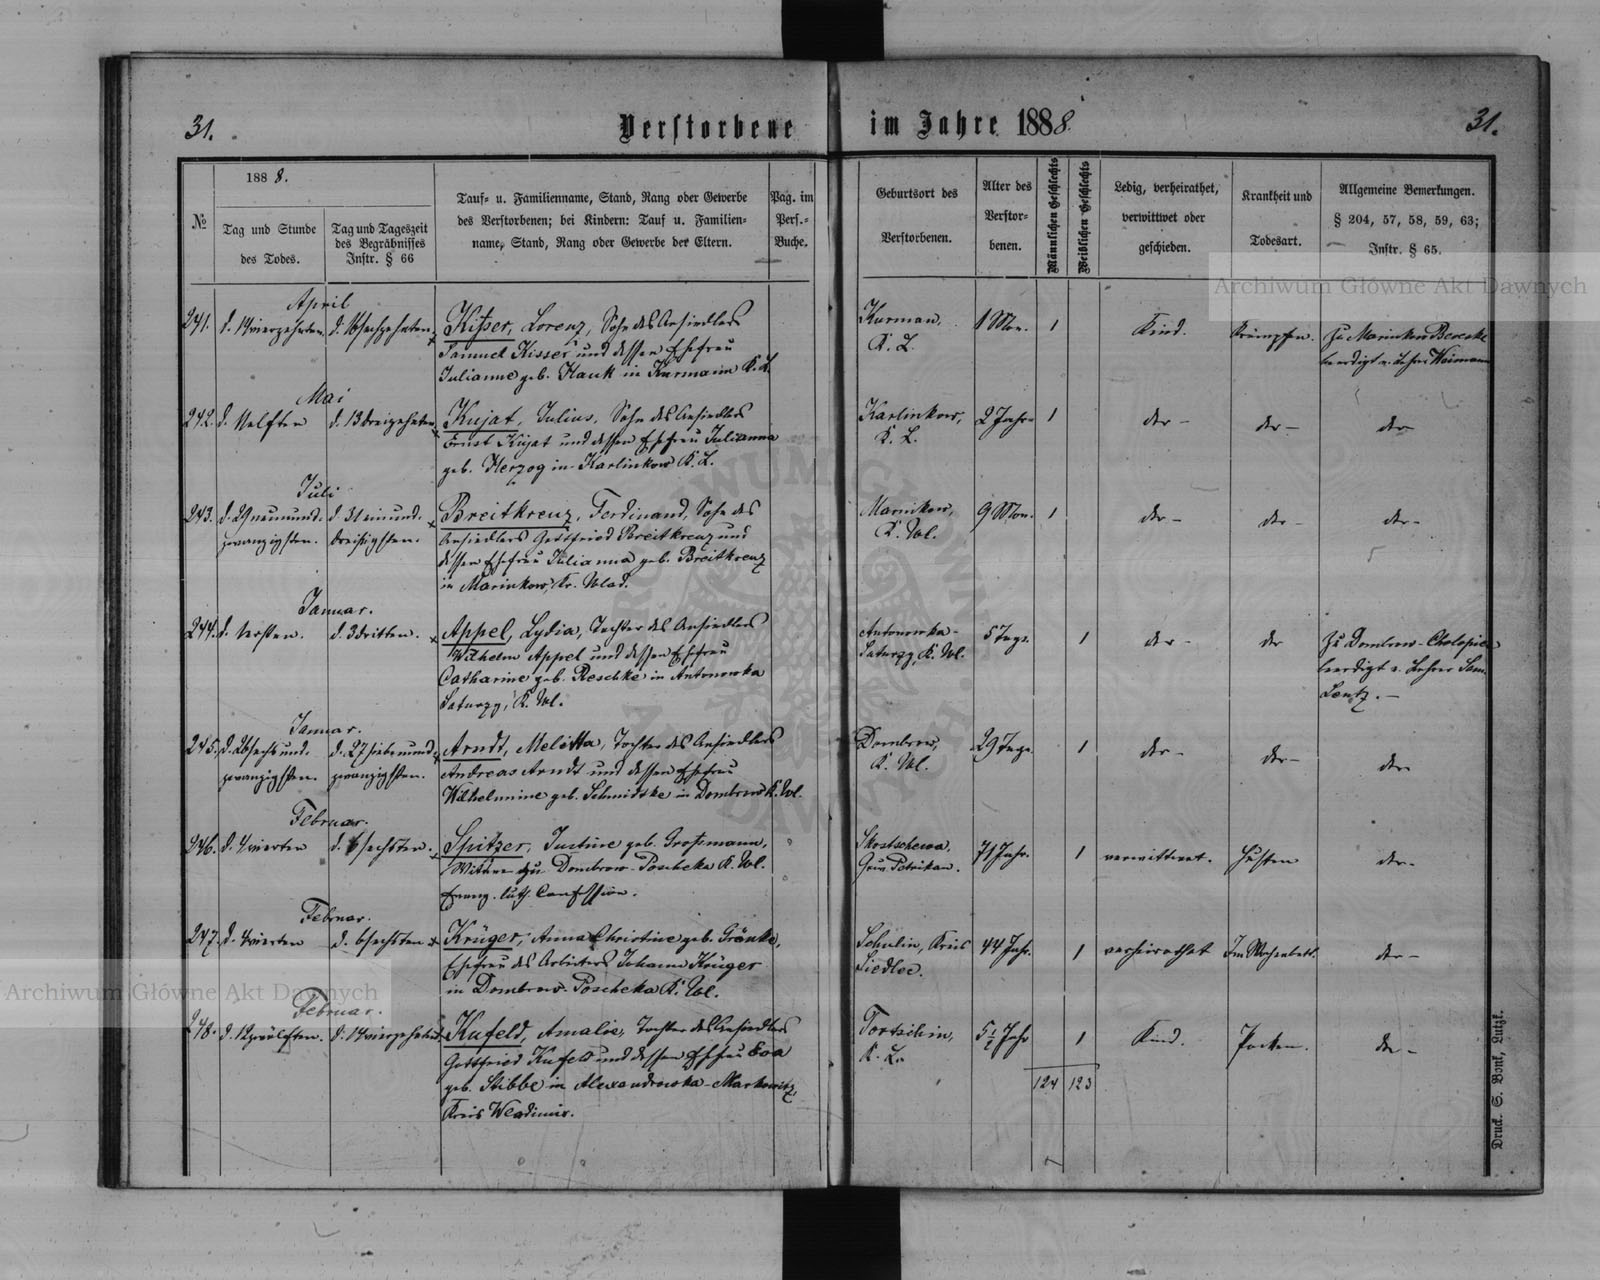 31.
Verstorbene im Jahre 1888.
31.
№
1888.
Tag und Stunde
des Todes.
Tag und Tageszeit
des Begräbnisses
Instr. § 66
Tauf- u. Familienname, Stand, Rang oder Gewerbe
des Verstorbenen; bei Kindern: Tauf u. Familien-
name, Stand, Rang oder Gewerbe der Eltern.
Pag. im
Pers.-
Buche.
Geburtsort des
Verstorbenen.
Alter des
Verstor-
benen.
Männlichen Geschlechts
Weiblichen Geschlechts
Ledig, verheirathet,
verwittwet oder
geschieden.
Krankheit und
Todesart.
Allgemeine Bemerkungen.
§ 204, 57, 58, 59, 63;
Instr. § 65.
April
241. d. 14 vierzehnten. d. 16 sechzehnten.
Kisser, Lorenz, Sohn des Ansiedlers
Samuel Kisser und dessen Ehefrau
Julianne geb. Hauk in Kurmann K. L.
Kurman,
K. L.
1 Mon. 1 Kind. Krämpfen.
Zu Marinkow
beerdigt v. Lehrer
Mai
242. d. 11 elften d. 13 dreizehnten
Kujat, Julius, Sohn des Ansiedlers
Ernst Kujat und dessen Ehefrau Julianna
geb. Herzog in Karlinkow K. L.
Karlinkow,
K. L.
2 Jahr 1 der- der- der-
Juli
243. d. 29 neunund-
zwanzigsten.
d. 31 einund-
dreißigsten.
Breitkreuz, Ferdinand, Sohn des
Ansiedlers Gottfried Breitkreuz und
dessen Ehefrau Julianna geb. Breitkreuz
in Marinkow, Kr. Wlad.
Marinkow,
K. Wl.
9 Mon. 1 der- der- der-
Januar.
244. d. 1 ersten. d. 3 dritten.
Appel, Lydia, Tochter des Ansiedlers
Wilhelm Appel und dessen Ehefrau
Catharine geb. Reschke in Antonowka
Saturzy, K. Wl.
Antonowka-
Saturzy, K. Wl.
5 Tage. 1 der- der
Zu Dombrow-
beerdigt v. Lehrer Sam.
Lentz.-
Januar.
245. d. 26 sechsund-
zwanzigsten.
d. 27 siebenund-
zwanzigsten.
Arndt, Melitta, Tochter des Ansiedlers
Andreas Arndt und dessen Ehefrau
Wilhelmine geb. Schmidtke in Dombrow K. Wl.
Dombrow,
K. Wl.
29 Tage 1 der- der- der
Februar.
246. d. 4 vierten d. 6 sechsten.
Spitzer, Justine geb. Großmann,
Wittwe zu Dombrow-Poscheka K. Wl.
Evang. luth. Confession.
Gouv. Petrikau.
71 Jahr. 1 verwittwet. Husten der-
Februar.
247. d. 4 vierten d. 6 sechsten
Krüger, Anna Christine geb. Gränke,
Ehefrau des Arbeiters Johann Krüger
in Dombrow-Poscheka K. Wl.
Schulin, Kreis
Siedlec.
44 Jahr. 1 verheirathet Im Wochenbett. der-
Februar.
248. d. 12 zwölften. d. 14 vierzehnten
Kufeld, Amalie, Tochter des Ansiedlers
Gottfried Kufeld und dessen Ehefrau Eva
geb. Stibbe in Alexandrowka-Markowitz,
Kreis Wladimir.
Tortschin,
K. L.
5½ Jahr 1 Kind. Pocken. der-
124 123
Druck. S. Bonk, Lutzk.
Archiwum Główne Akt Dawnych
Archiwum Główne Akt Dawnych